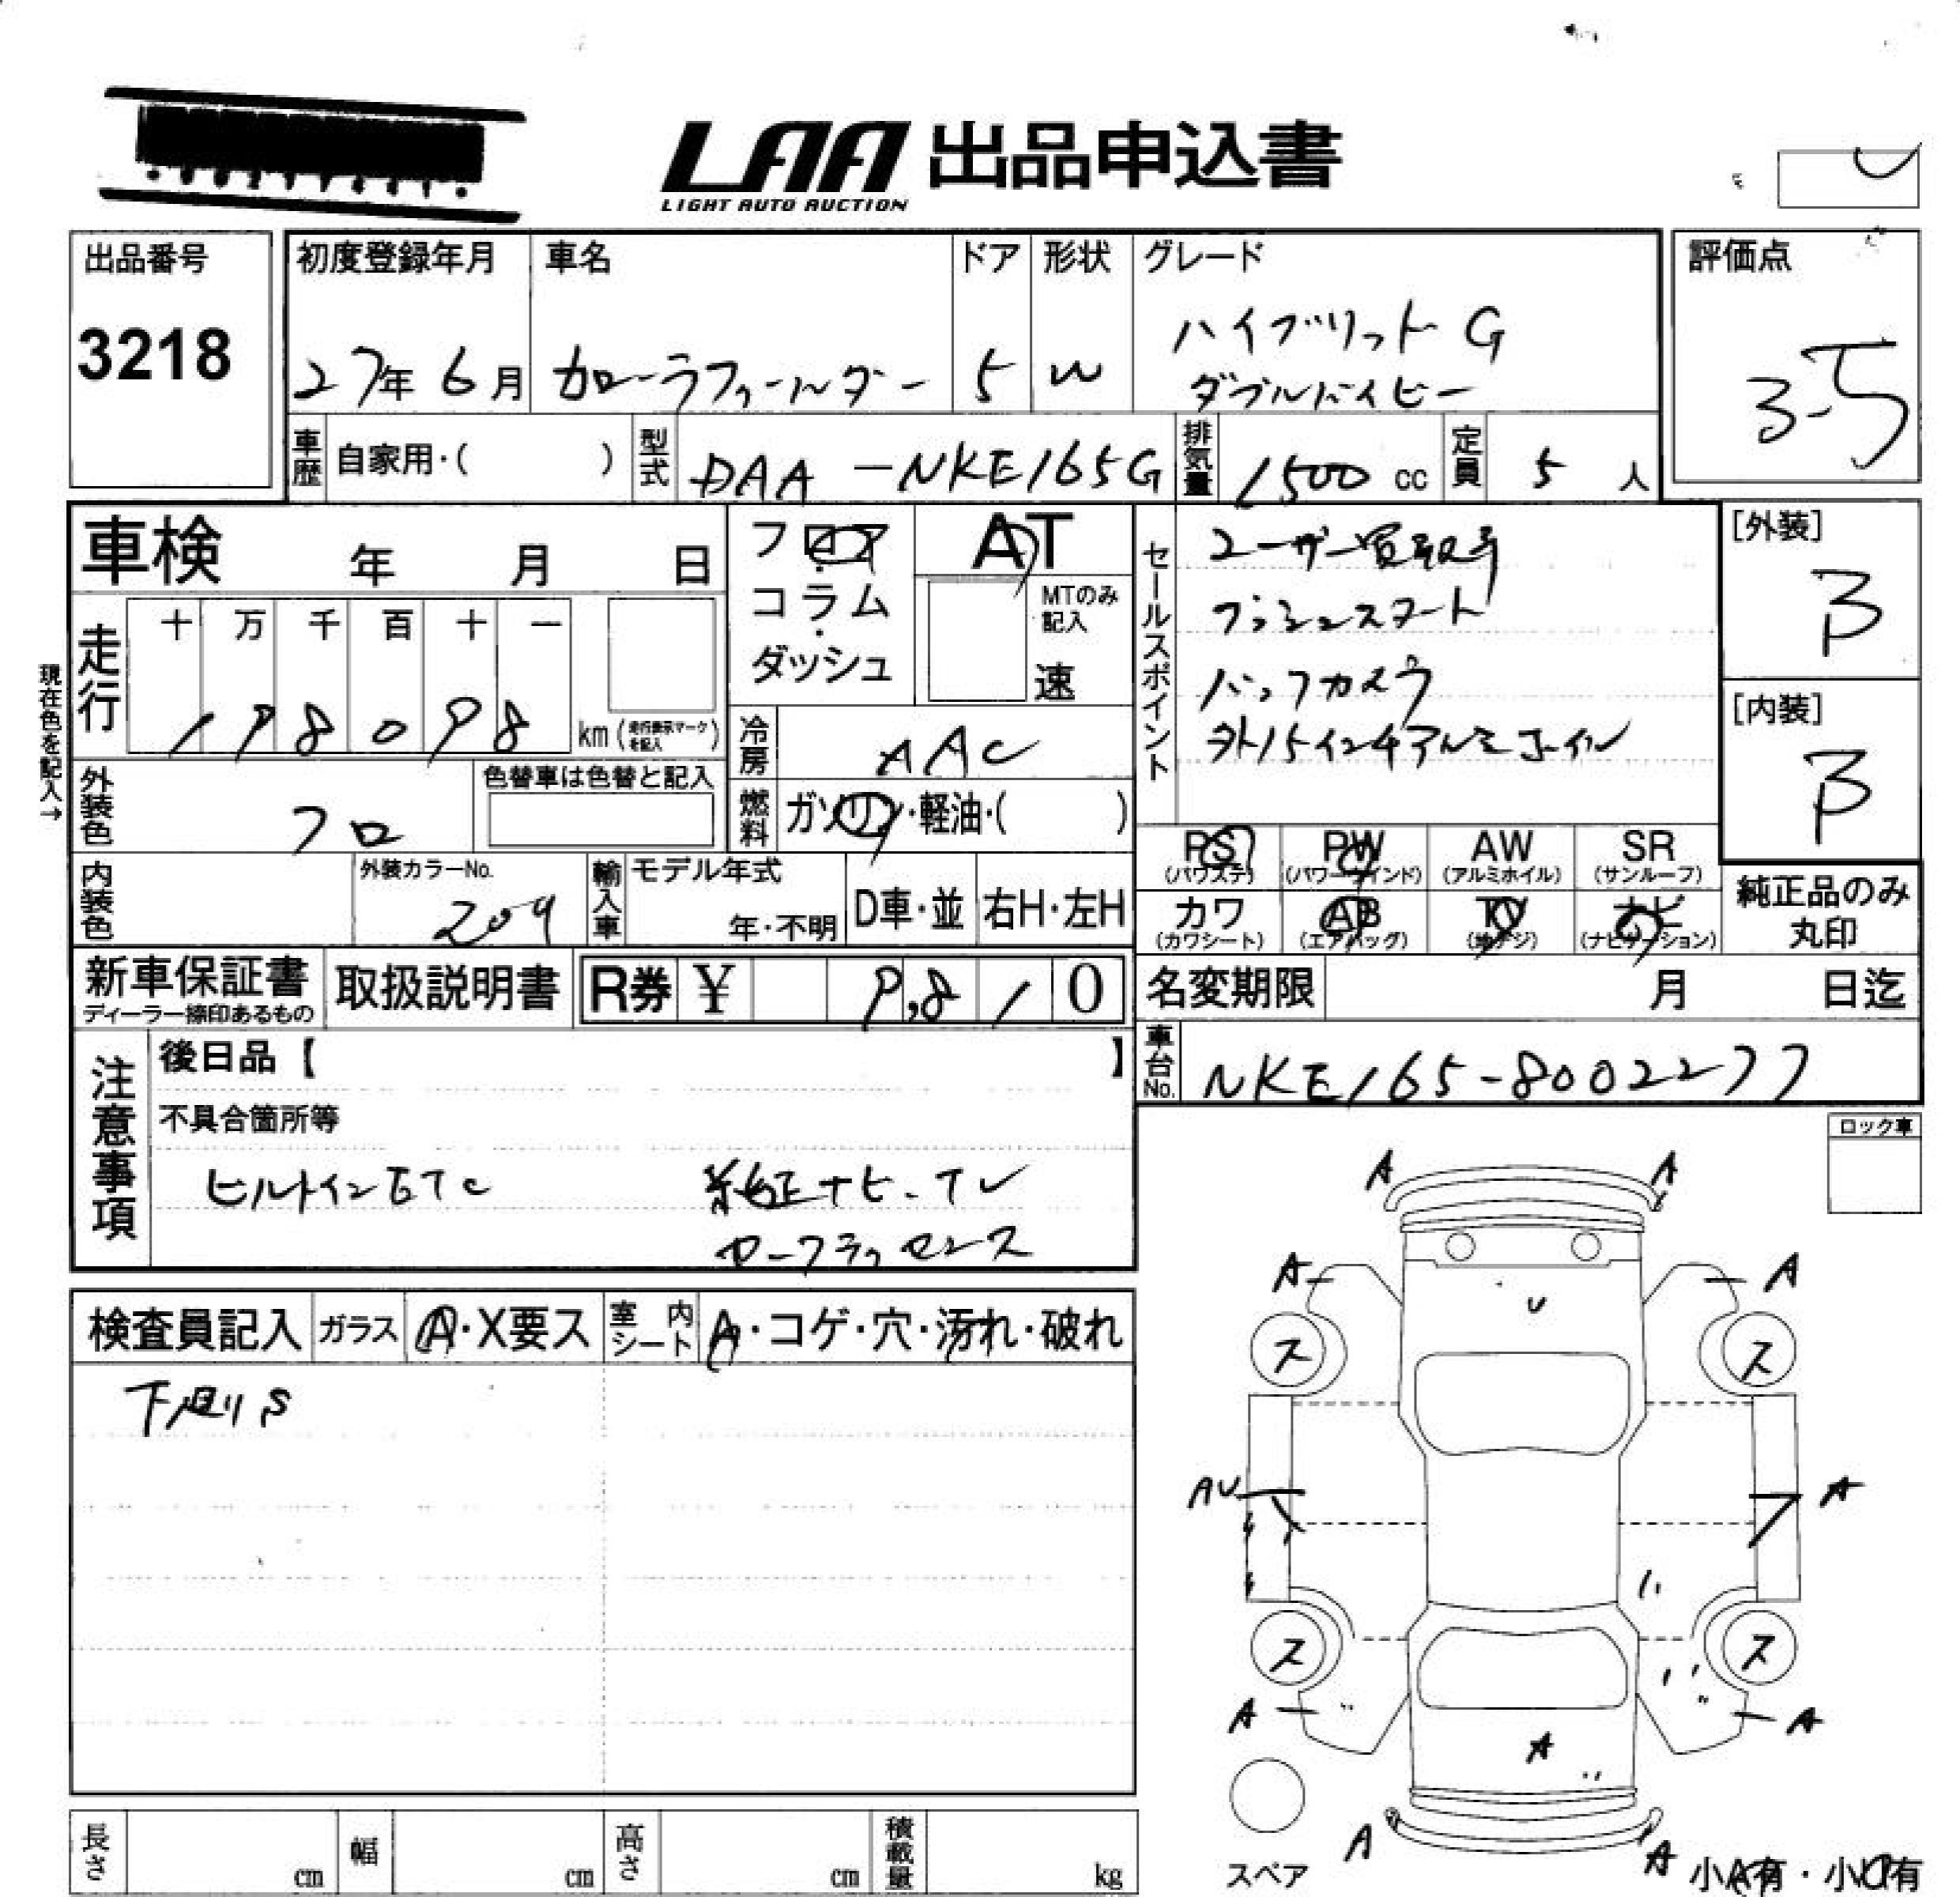 LAA 出品申込書
LIGHT AUTO AUCTION
出品番号
3218
初度登録年月
27年 6月
車名
カローラフィールダー
ドア
5
形状
W
グレード
ハイブリット G
ダブルバイビー
評価点
3.5
車歴
自家用・( )
型式
DAA-NKE165G
排気量
1500 cc
定員
5 人
車検 年 月 日
フロア・コラム・ダッシュ
AT
MTのみ記入
速
セールスポイント
ユーザー買取車
プッシュスタート
バックカメラ
外15インチアルミホイル
[外装]
B
[内装]
B
現在色を記入→
走行
十 万 千 百 十 一
1 9 8 0 9 8 km (走行表示マークを記入)
冷房
AAC
燃料
ガソリン・軽油・( )
外装色
クロ
色替車は色替と記入
内装色
外装カラーNo.
209
輸入車
モデル年式
年・不明
D車・並
右H・左H
PS
(パワステ)
PW
(パワーウインド)
AW
(アルミホイル)
SR
(サンルーフ)
カワ
(カワシート)
AB
(エアバッグ)
TV
(地デジ)
ナビ
(ナビゲーション)
純正品のみ
丸印
新車保証書
ディーラー捺印あるもの
取扱説明書
R券 ¥ 9,810
名変期限 月 日迄
車台No.
NKE165-8002277
注意事項
後日品【 】
不具合箇所等
ビルトインETC 純正ナビ.TV
セーフティセンス
ロック車
検査員記入
ガラス
A・X要ス
室内シート
A・コゲ・穴・汚れ・破れ
下廻りS
A A
A A
U
ス ス
AU A
ス ス
A A
A
A A
スペア
小A有・小U有
長さ cm
幅 cm
高さ cm
積載量 kg